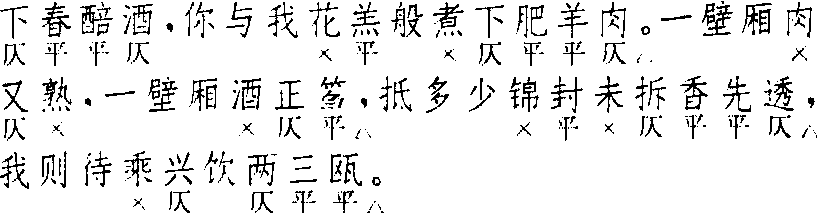 下春醅酒，你与我花羔般煮下肥羊肉。一壁厢肉
仄平平仄 × 平 × 仄平平仄△ ×
又熟，一壁厢酒正篘，抵多少锦封未拆香先透，
仄× ×仄平△ ×平×仄平平仄△
我则待乘兴饮两三瓯。
×仄 仄平平△